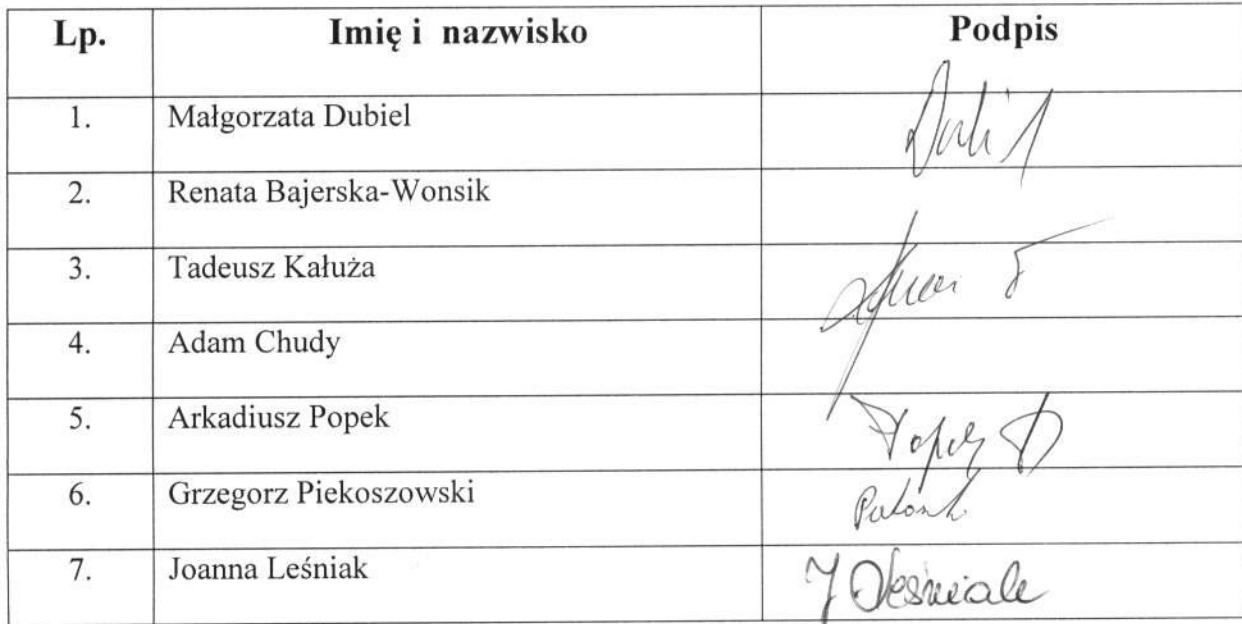 Lp. Imię i nazwisko Podpis
1. Małgorzata Dubiel
2. Renata Bajerska-Wonsik
3. Tadeusz Kałuża
4. Adam Chudy
5. Arkadiusz Popek
6. Grzegorz Piekoszowski
7. Joanna Leśniak J Leśniak